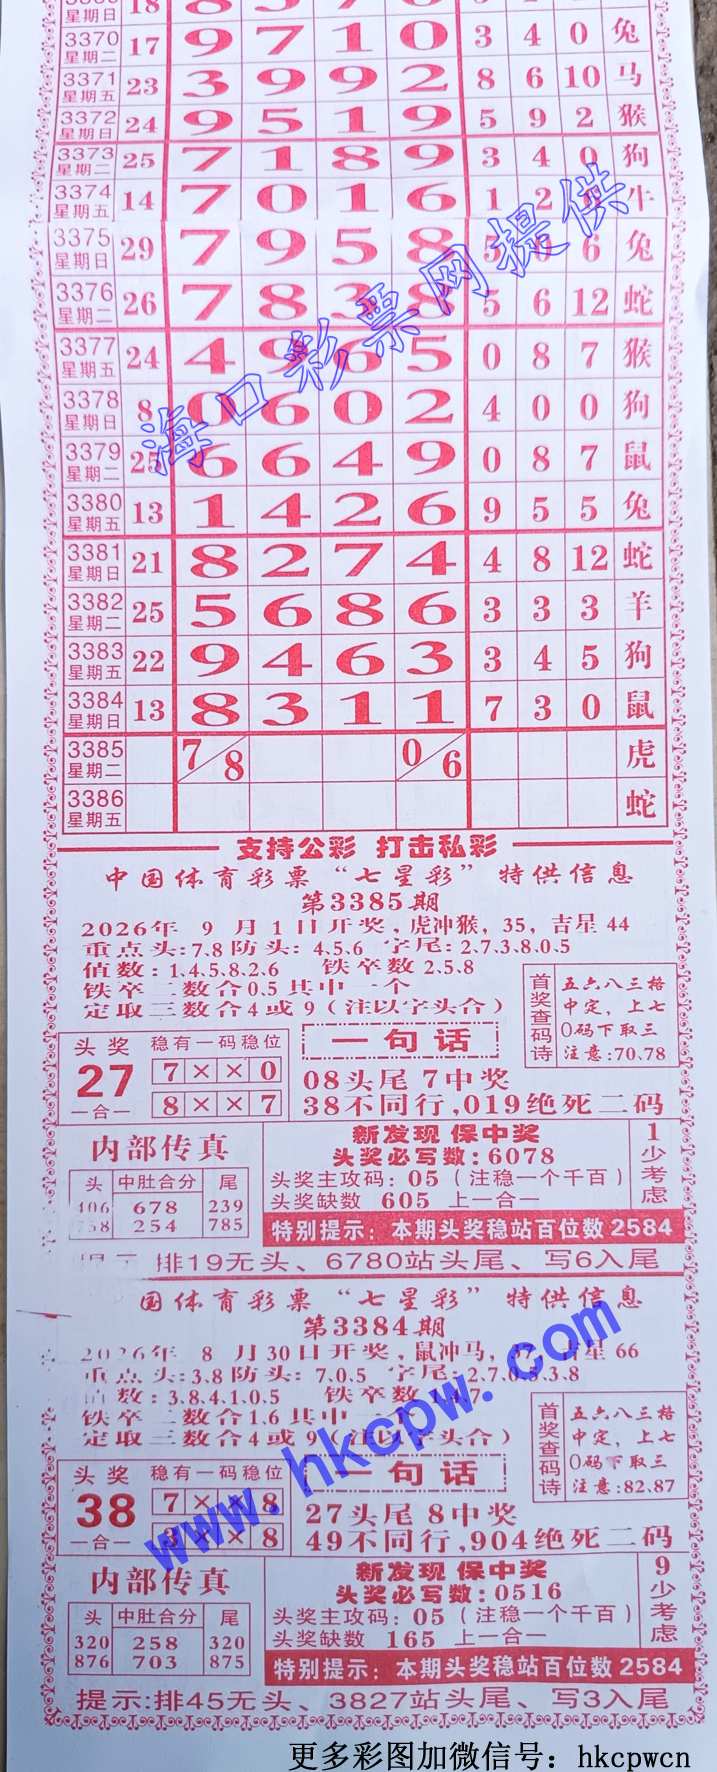 星期日 18
3370 星期二 17 9 7 1 0 3 4 0 兔
3371 星期五 23 3 9 9 2 8 6 10 马
3372 星期日 24 9 5 1 9 5 9 2 猴
3373 星期二 25 7 1 8 9 3 4 0 狗
3374 星期五 14 7 0 1 6 1 2 牛
3375 星期日 29 7 9 5 8 5 6 兔
3376 星期二 26 7 8 3 8 5 6 12 蛇
3377 星期五 24 4 9 6 5 0 8 7 猴
3378 星期日 8 0 6 0 2 4 0 0 狗
3379 星期二 25 6 6 4 9 0 8 7 鼠
3380 星期五 13 1 4 2 6 9 5 5 兔
3381 星期日 21 8 2 7 4 4 8 12 蛇
3382 星期二 25 5 6 8 6 3 3 3 羊
3383 星期五 22 9 4 6 3 3 4 5 狗
3384 星期日 13 8 3 1 1 7 3 0 鼠
3385 星期二 7/8 0/6 虎
3386 星期五 蛇
海口彩票网提供
支持公彩 打击私彩
中国体育彩票“七星彩”特供信息
第3385期
2026年 9 月 1 日开奖, 虎冲猴, 35, 吉星 44
重点头: 7.8 防头: 4.5.6 字尾: 2.7.3.8.0.5
值数: 1.4.5.8.2.6 铁卒数 2.5.8
铁卒二数合 0.5 其中一个
定取三数合 4 或 9 (注以字头合)
首奖查码诗
五六八三格
中定, 上七
0码下取三
注意:70.78
头奖 27 一合一
稳有一码稳位
7 × × 0
8 × × 7
一句话
08头尾 7中奖
38不同行,019绝死二码
内部传真
头 中肚合分 尾
406 678 239
738 254 785
新发现 保中奖
头奖必写数: 6078
头奖主攻码: 05 (注稳一个千百)
头奖缺数 605 上一合一
1少考虑
特别提示: 本期头奖稳站百位数 2584
提示 排19无头、6780站头尾、写6入尾
国体育彩票“七星彩”特供信息
第3384期
2026年 8 月 30 日开奖, 鼠冲马, 37, 吉星 66
重点头: 3.8 防头: 7.0.5 字尾: 2.7.0.5.3.8
值数: 3.8.4.1.0.5 铁卒数 1.4
铁卒二数合 1.6 其中一个
定取三数合 4 或 9 (注以字头合)
首奖查码诗
五六八三格
中定, 上七
0码下取三
注意:82.87
头奖 38 一合一
稳有一码稳位
7 × × 8
3 × × 8
一句话
27头尾 8中奖
49不同行,904绝死二码
内部传真
头 中肚合分 尾
320 258 320
876 703 875
新发现 保中奖
头奖必写数:0516
头奖主攻码: 05 (注稳一个千百)
头奖缺数 165 上一合一
9少考虑
特别提示: 本期头奖稳站百位数 2584
提示:排45无头、3827站头尾、写3入尾
www.hkcpw.com
更多彩图加微信号: hkcpwcn